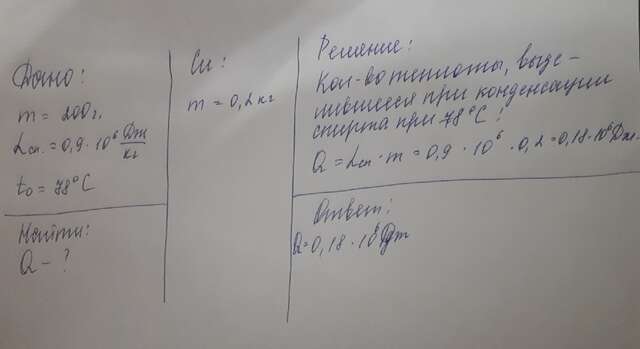 Дано:
m = 200 г.
Lсп. = 0,9 · 10⁶ Дж/кг
t₀ = 78°C
Найти:
Q - ?
Си:
m = 0,2 кг
Решение:
Кол-во теплоты, выде-
лившееся при конденсации
спирта при 78°C:
Q = Lсп · m = 0,9 · 10⁶ · 0,2 = 0,18 · 10⁶ Дж.
Ответ:
Q = 0,18 · 10⁶ Дж